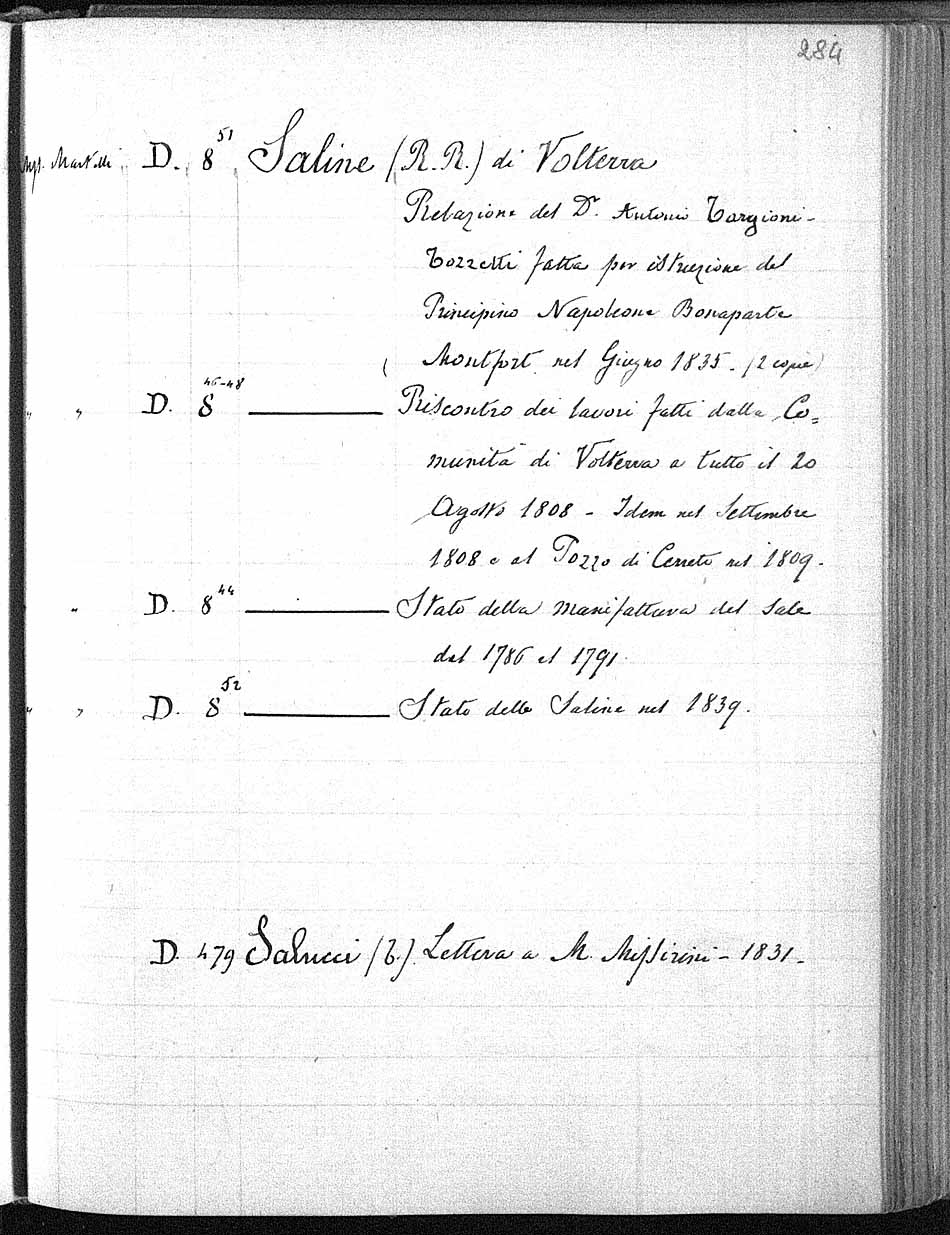 284
Mss. Martelli D. 8 51 Saline (R. R.) di Volterra
Relazione del Dr. Antonio Targioni-
Tozzetti fatta per istruzione del
Principino Napoleone Bonaparte
Montfort nel Giugno 1835. (2 copie)
" " D. 8 46-48 ——— Riscontro dei lavori fatti dalla Co=
munità di Volterra a tutto il 20
Agosto 1808 - Idem nel Settembre
1808 e al Pozzo di Cerreto nel 1809.
" D. 8 44 ——— Stato della manifattura del Sale
dal 1786 al 1791.
" " D. 8 52 ——— Stato delle Saline nel 1839.
D. 479 Salucci (G.) Lettera a M. Missirini - 1831.